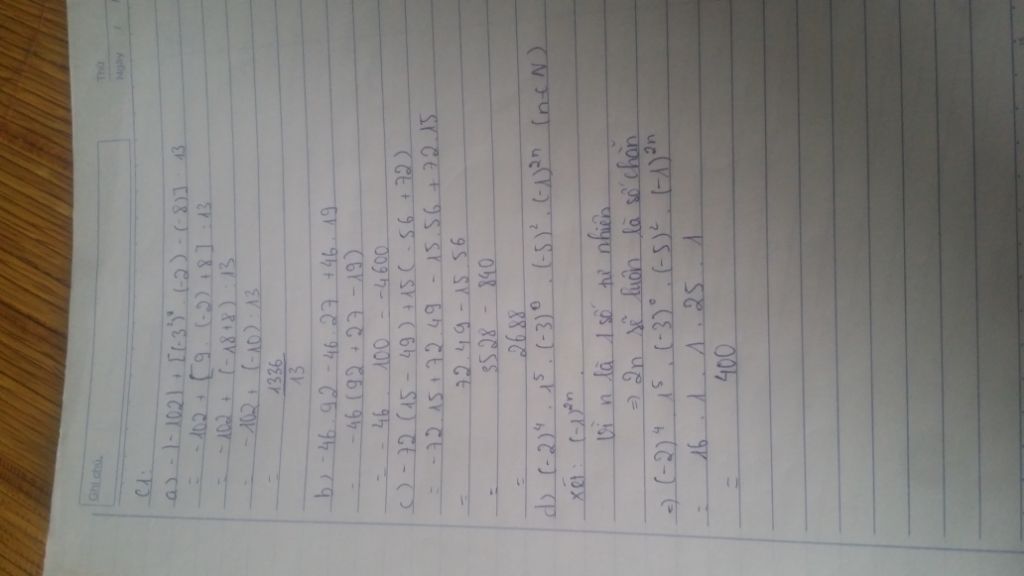 Thứ
Ngày
Ghi đầu
C1:
a) -|-102| + [(-3)². (-2) - (-8)] : 13
= -102 + [9. (-2) + 8] : 13
= -102 + (-18+8) : 13
= -102 + (-10) : 13
= 1336/13
b) -46. 92 - 46. 27 + 46. 19
= -46 (92 + 27 - 19)
= -46. 100 = -4600
c) -72 (15 - 49) + 15 (-56 + 72)
= -72.15 + 72.49 - 15.56 + 72.15
= 72.49 - 15.56
= 3528 - 840
= 2688
d) (-2)⁴. 1⁵. (-3)⁰. (-5)². (-1)²ⁿ (n∈N)
xét: (-1)²ⁿ
Vì n là 1 số tự nhiên
⇒ 2n sẽ luôn là số chẵn
⇒ (-2)⁴. 1⁵. (-3)⁰. (-5)². (-1)²ⁿ
= 16. 1. 1. 25. 1
= 400